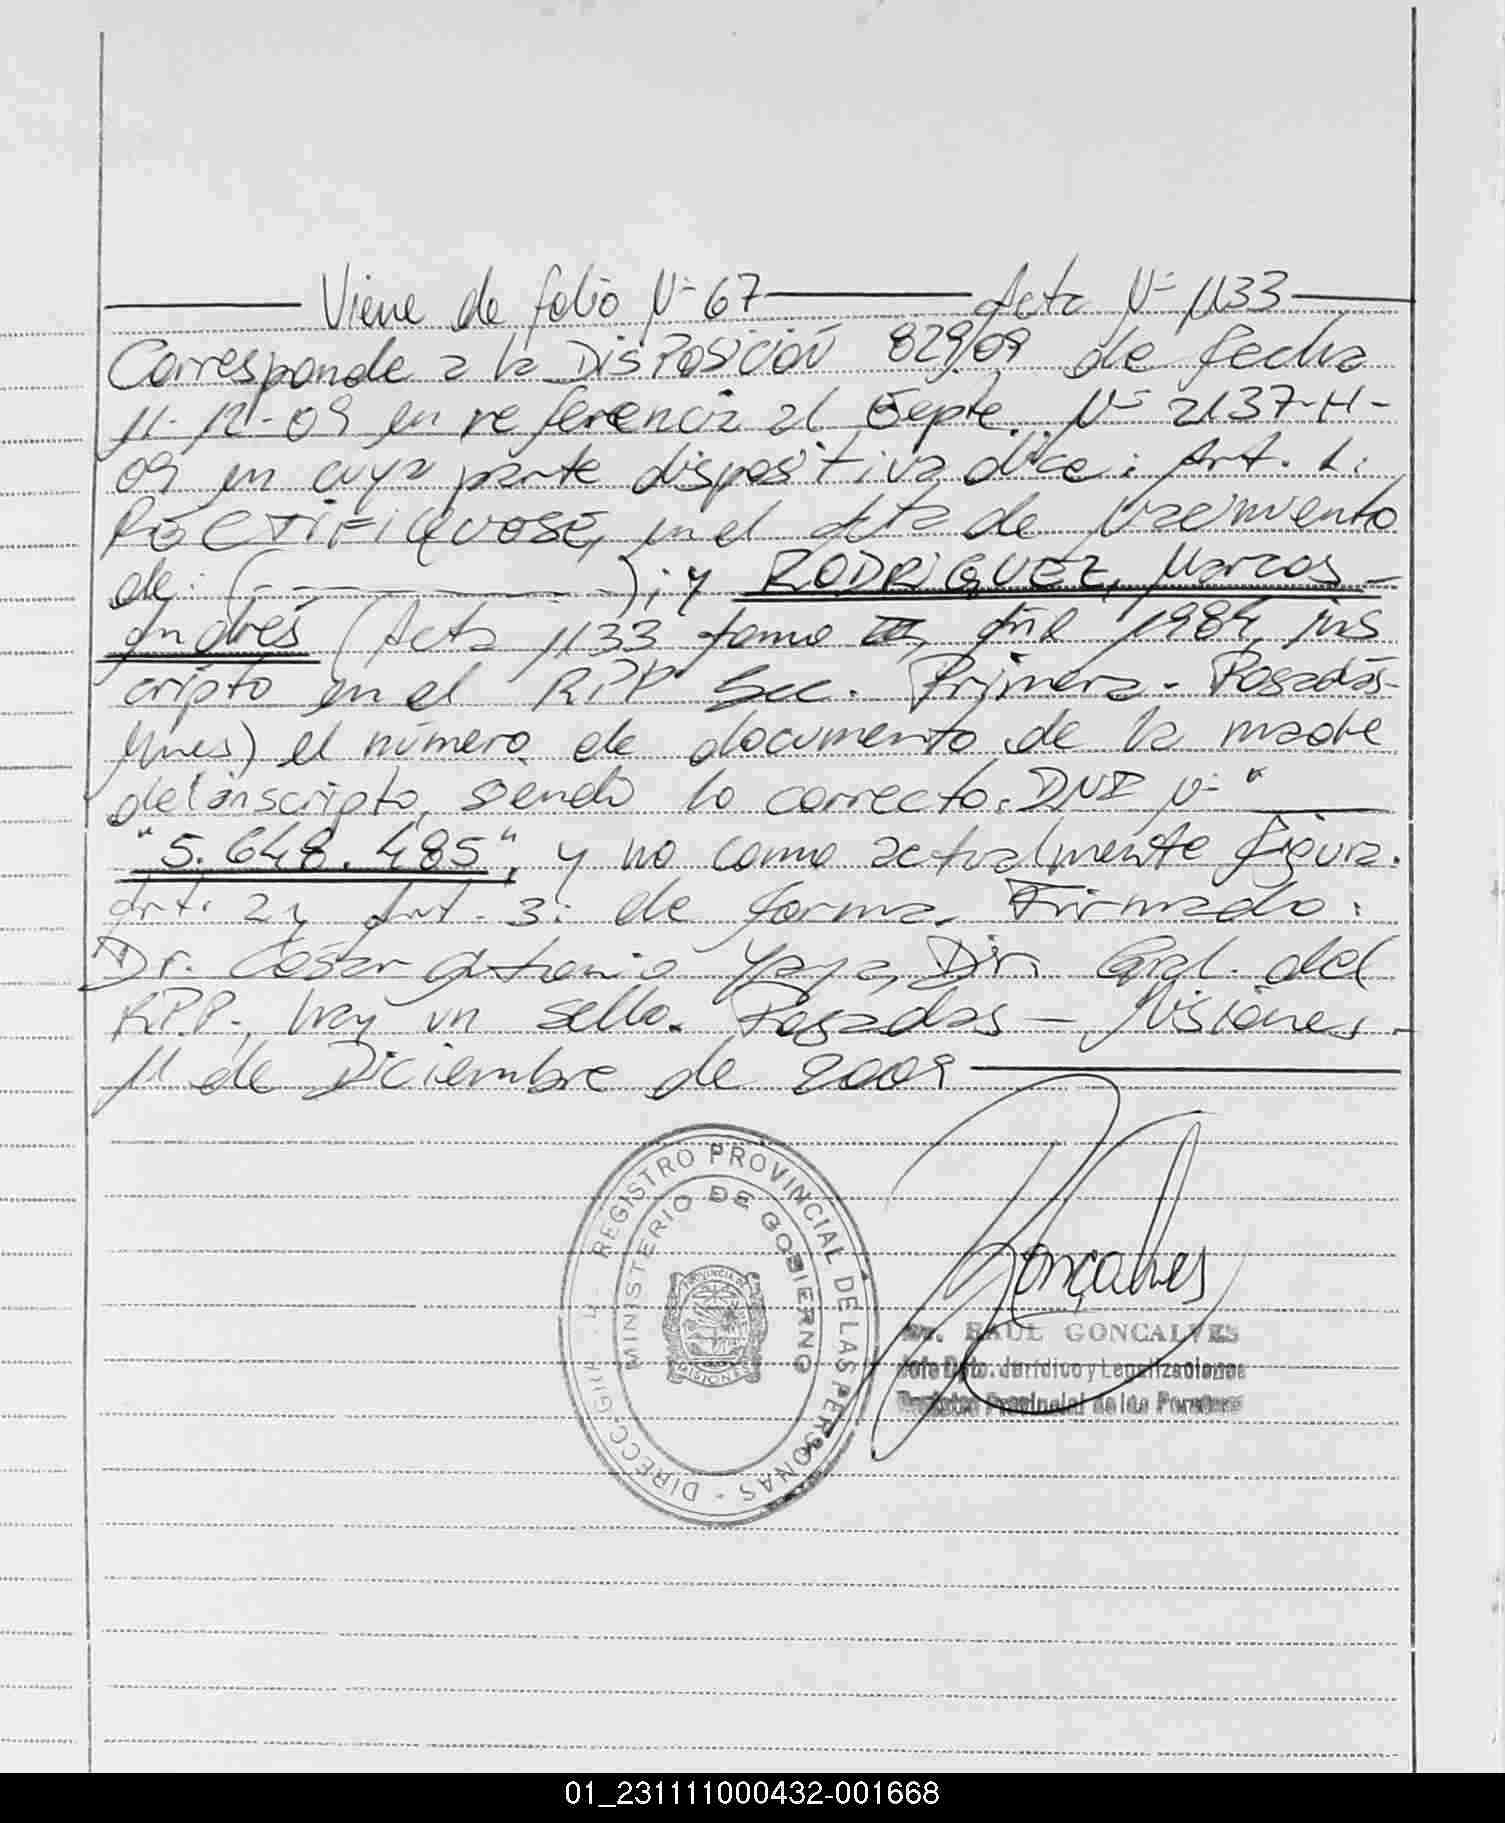 Viene de folio Nº 67 Acta Nº 1133
Corresponde a la DISPOSICIÓN 829/09 de fecha
11-12-09 en referencia al Expte. Nº 2137-H-
09 en cuya parte dispositiva dice: Art. 1:
RECTIFIQUOSE, en el Acta de Nacimiento
de: ( - - - ); y RODRIGUEZ, Marcos
Andrés (Acta 1133 tomo año 1984, ins
cripto en el RPP Sec. Primera - Posadas-
Mnes) el número de documento de la madre
del inscripto, siendo lo correcto: DNI Nº "
"5.648.485", y no como actualmente figura.
Art. 2 y Art. 3: de forma. Firmado:
Dr. César Antonio Yaya, Dir. Gral. del
RPP., hay un sello. Posadas - Misiones -
11 de Diciembre de 2009
REGISTRO PROVINCIAL DE LAS PERSONAS - DIRECC. GRAL.
MINISTERIO DE GOBIERNO
PROVINCIA DE
MISIONES
Gonçalves
RAUL GONCALVES
Jefe Dpto. Jurídico y Legalizaciones
Registro Provincial de las Personas
01_231111000432-001668